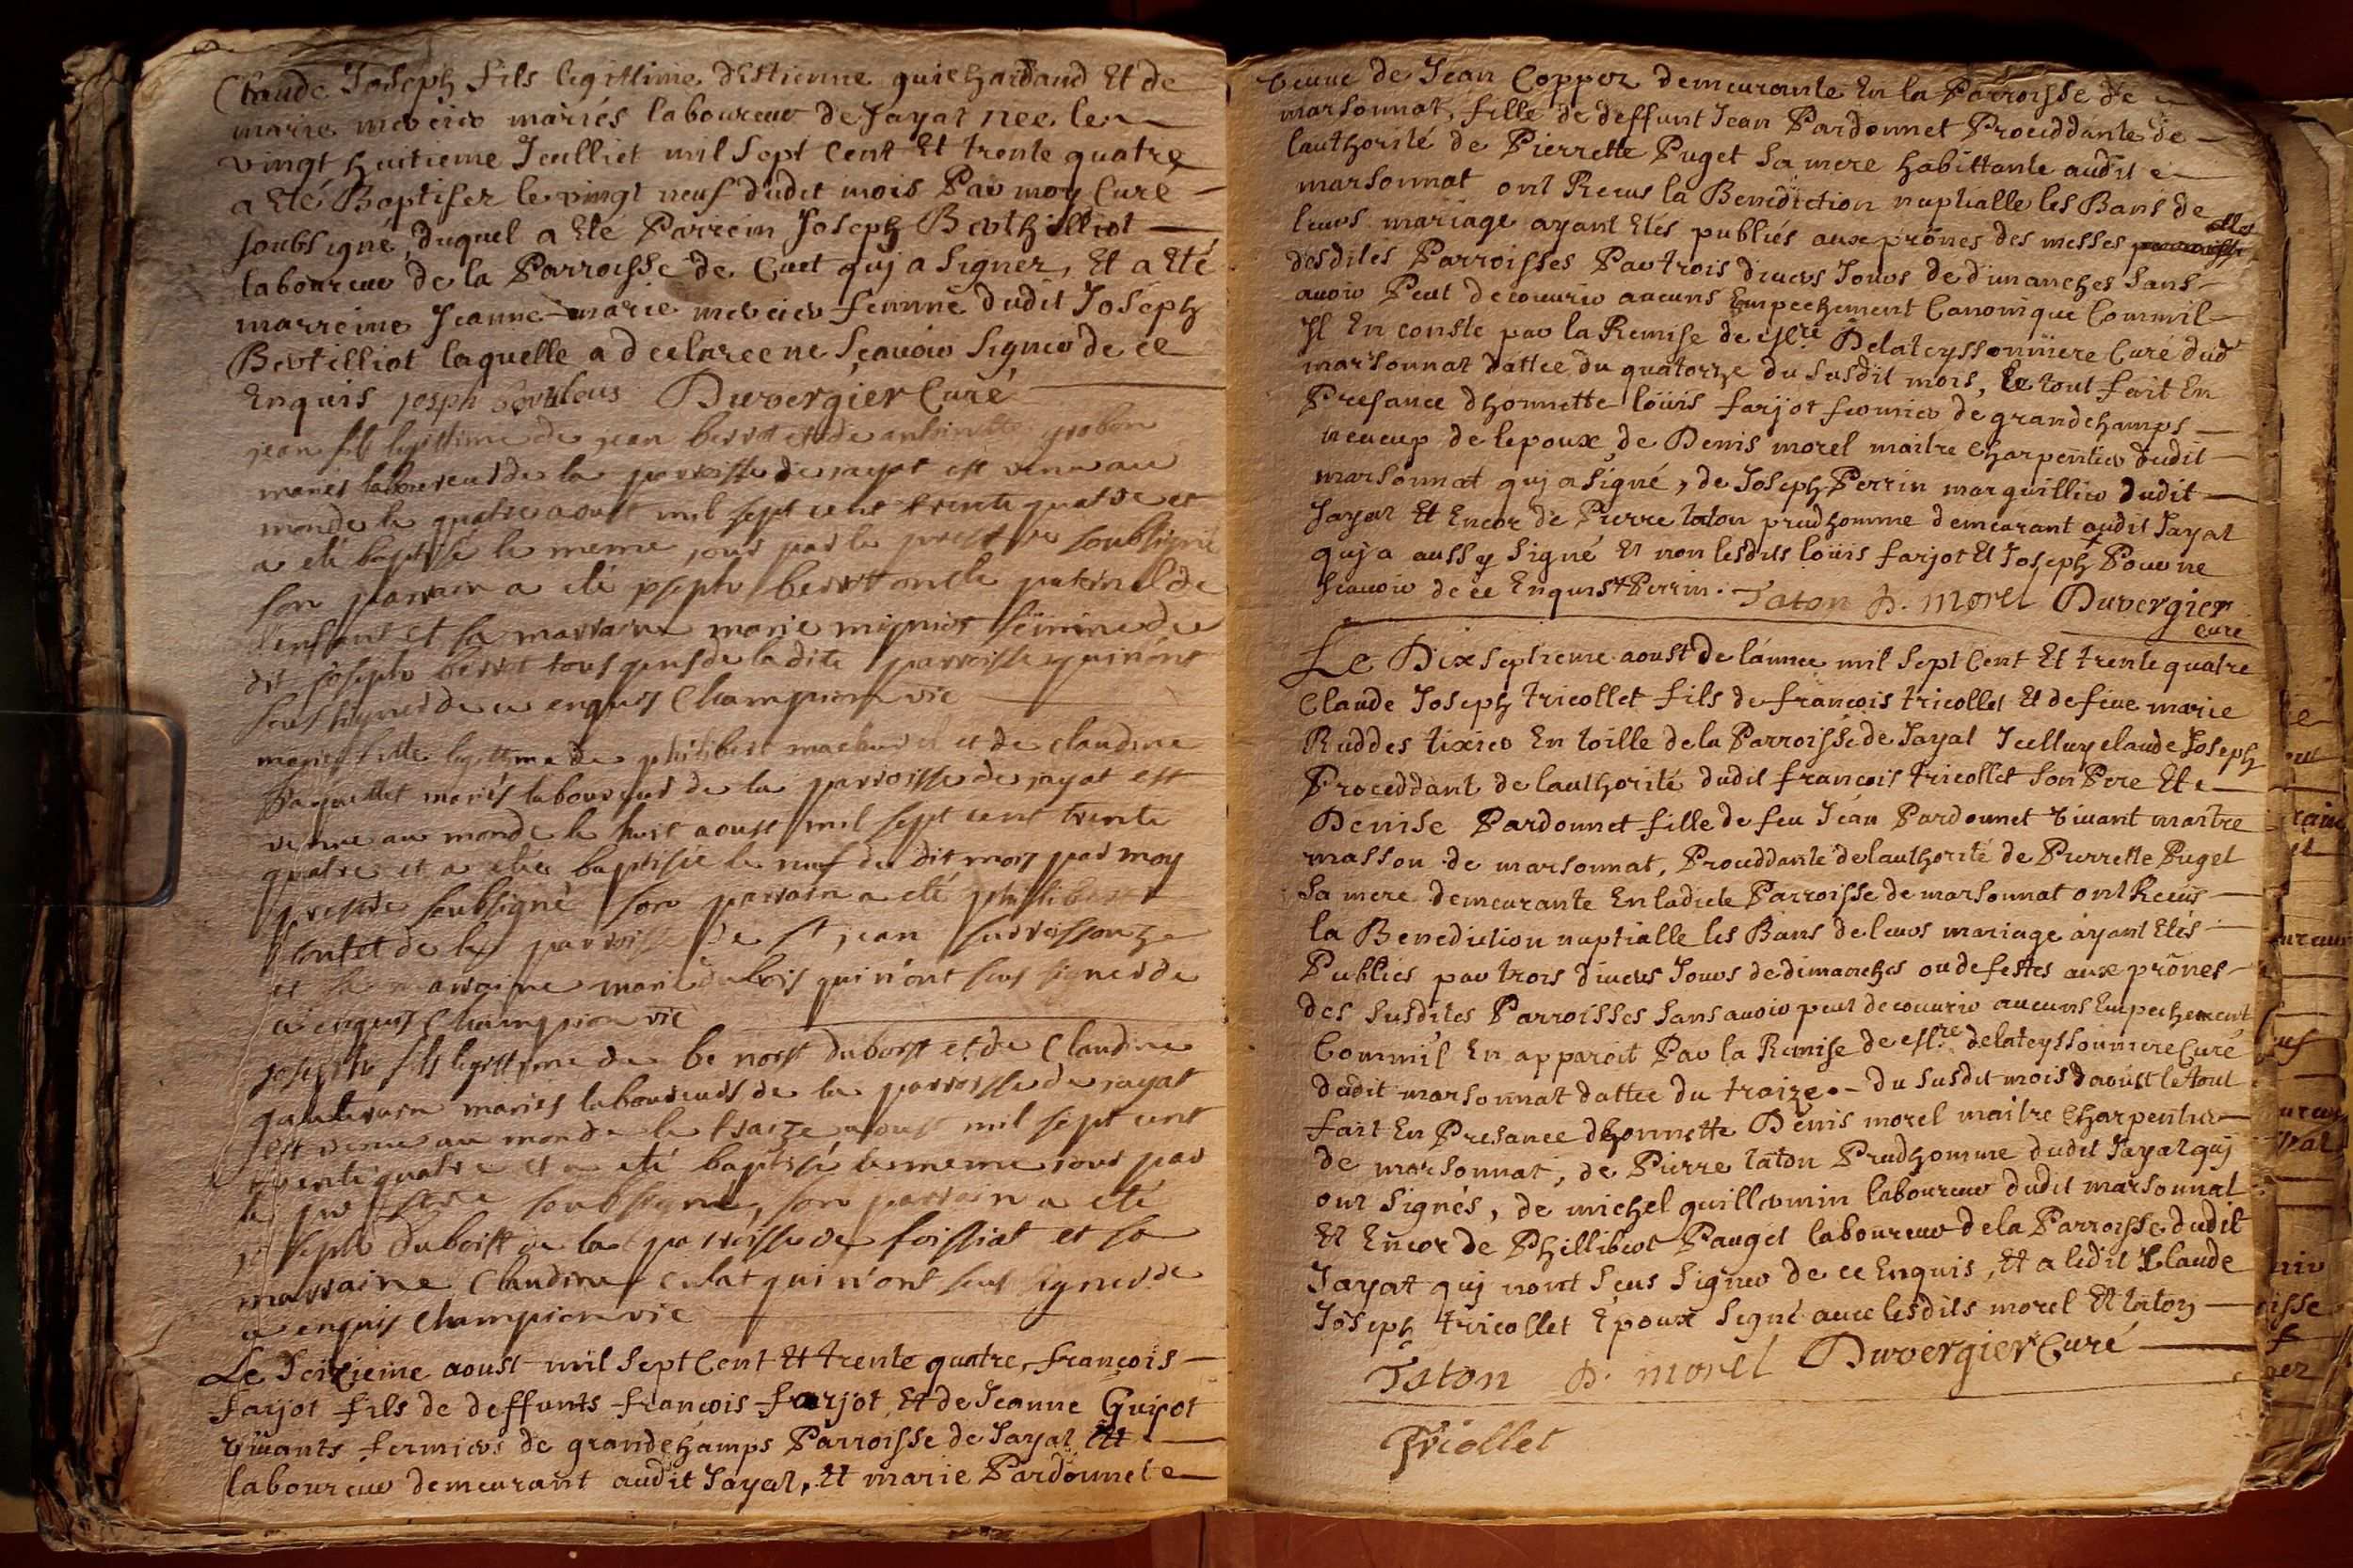 Claude Joseph fils legittime d'Estienne guichardand Et de
marie mercier mariés laboureur de Jayat nee le
vingt huitieme Jeulliet mil Sept Cent Et trente quatre
a Eté Baptiser le vingt neuf dudit mois Par moy Curé
soubsigné, duquel a Eté Parrein Joseph Berthilliot
laboureur de la Parroisse de Cuet quj a Signer, Et a Eté
marreine Jeanne-marie mercier femme dudit Joseph
Bertilliot laquelle a declareene Sçauoir Signer de ce
Enquis Josph Duvergier Curé
jean fils legittime de jean berrot et de antoinette grobon
mariés laboureurs de la parroisse de jayat est venu au
monde le quatre aoust mil sept cent trente quatre et
a eté baptisé le meme jour par le prestre soubsigné
son parrain a eté joseph berrot oncle paternel de
l'enfant et sa marraine marie mignot femme du
dit joseph berrot tous gens de la dite parroisse qui n'ont
seus signer de ce enquis Champion vic
marie fille legittime de philibert et de claudine
mariés laboureurs de la parroisse de jayat est
venue au monde le huit aoust mil sept cent trente
quatre et a etée baptisée le neuf du dit mois par moy
prestre soubsigné son parrain a eté philibert
de la parroisse de st jean surreissouze
et sa marraine marie dubois qui n'ont seus signer de
ce enquis Champion vic
joseph fils legittime de benoist duboist et de Claudine
mariés laboureurs de la parroisse de jayat
est venu au monde le traize aoust mil sept cent
trente quatre et a eté baptisé le meme jour par
le prestre soubsigné, son parrain a eté
joseph duboist de la parroisse de foissiat et sa
marraine Claudine culat qui n'ont seus signer de
ce enquis Champion vic
Le Seizieme aoust mil Sept Cent Et trente quatre, françois
farjot fils de deffunts françois farjot, Et de Jeanne Guijot
viuants fermiers de grandchamps Parroisse de Jayat Et
laboureur demeurant audit Jayat, Et marie Pardonnet
veuue de Jean Coppez demeurante En la Parroisse de
marsonnat, fille de deffunt Jean Pardonnet Proceddante de
lauthorité de Pierrette Puget Sa mere habittante audit
marsonnat ont Receus la Benediction nuptialle les Bans de
leurs mariage ayant Etés publiés aux prônes des messes
desdites Parroisses Par trois diuers Jours de dimanches Sans
auoir Peut decouurir aucuns Empechement Canonique Commil
Jl En conste par la Remise de Mre Delateyssonniere Curé dud
marsonnat dattee du quatorze du susdit mois, le tout fait En
Presance dhonnette loüis farjot fermier de grandchamps
neueup de lepoux, de Denis morel maitre Charpentier dudit
marsonnat quj a Signé, de Joseph Perrin marguillier dudit
Jayat Et Encor de Pierre taton prudhomme demeurant audit Jayat
quj a aussy Signé Et non lesdits loüis farjot Et Joseph + Pour ne
Scauoir de ce Enquis + Perrin. Taton D. morel Duvergier
Curé
Le Dix septieme aoust de lánnee mil Sept Cent Et trente quatre
Claude Joseph tricollet fils de françois tricollet Et de feue marie
Ruddes tixier En toille de la Parroisse de Jayat Jcelluy claude Joseph
Proceddant de lauthorité dudit françois tricollet Son Pere Et
Denise Pardonnet fille de feu Jean Pardonnet viuant maitre
masson de marsonnat, Proceddante de lauthorité de Pierrette Puget
Sa mere demeurante En ladicte Parroisse de marsonnat ont Receus
la Benediction nuptialle les Bans de leurs mariage áyant Etés
Publiés par trois diuers Jours de dimanches ou de festes aux prônes
des susdites Parroisses Sans auoir peut decouurir aucuns Empechement
Commil En apparoit Par la Remise de Mre delateyssonniere Curé
dudit marsonnat dattee du traize. du susdit mois daoust le tout
fait En Presance dhonnette Denis morel maitre Charpentier
de marsonnat, de Pierre taton Prudhomme dudit Jayat quj
ont Signés, de michel guillermin laboureur dudit marsonnat
Et Encor de Phillibert Pauget laboureur de la Parroisse dudit
Jayat quj nont Seus Signer de ce Enquis, Et a ledit Claude
Joseph tricollet Epoux Signé auec lesdits morel Et taton
Taton D. morel Duvergier Curé
Tricollet